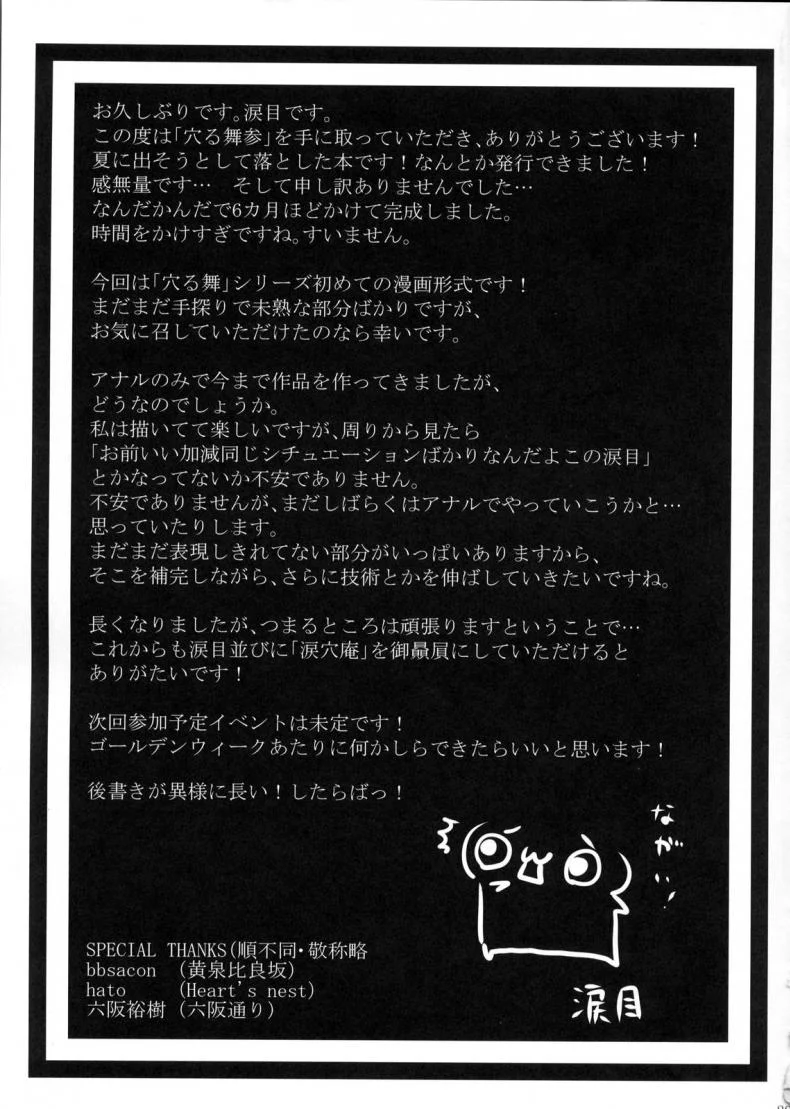 お久しぶりです。涙目です。
この度は「穴る舞参」を手に取っていただき、ありがとうございます！
夏に出そうとして落とした本です！なんとか発行できました！
感無量です…　そして申し訳ありませんでした…
なんだかんだで6カ月ほどかけて完成しました。
時間をかけすぎですね。すいません。

今回は「穴る舞」シリーズ初めての漫画形式です！
まだまだ手探りで未熟な部分ばかりですが、
お気に召していただけたのなら幸いです。

アナルのみで今まで作品を作ってきましたが、
どうなのでしょうか。
私は描いてて楽しいですが、周りから見たら
「お前いい加減同じシチュエーションばかりなんだよこの涙目」
とかなってないか不安でありません。
不安でありませんが、まだしばらくはアナルでやっていこうかと…
思っていたりします。
まだまだ表現しきれてない部分がいっぱいありますから、
そこを補完しながら、さらに技術とかを伸ばしていきたいですね。

長くなりましたが、つまるところは頑張りますということで…
これからも涙目並びに「涙穴庵」を御贔屓にしていただけると
ありがたいです！

次回参加予定イベントは未定です！
ゴールデンウィークあたりに何かしらできたらいいと思います！

後書きが異様に長い！したらばっ！
ながい！
SPECIAL THANKS(順不同・敬称略
bbsacon （黄泉比良坂）
hato （Heart's nest）
六阪裕樹 （六阪通り）
涙目